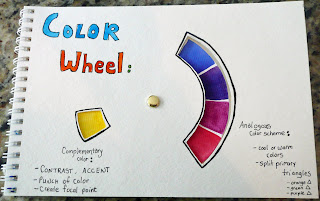 COLOR
Wheel:
Complementary
color:
- CONTRAST, ACCENT
- Punch of color
- Create focal point
Analogous
Color scheme:
- cool or warm
colors
- split primary
triangles
- orange △
- green △
- purple △